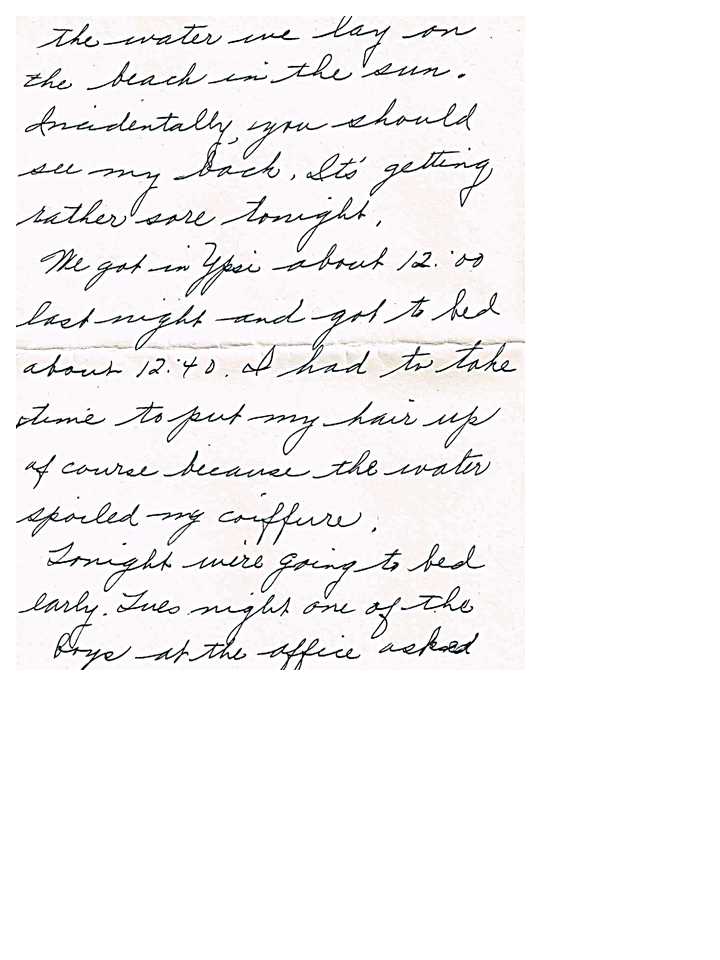 the water we lay on
the beach in the sun.
Incidentally, you should
see my back. Its' getting
rather sore tonight.
We got in Ypsi about 12:00
last night and got to bed
about 12:40. I had to take
time to put my hair up
of course because the water
spoiled my coiffure.
Tonight we're going to bed
early. Tues night one of the
boys at the office asked